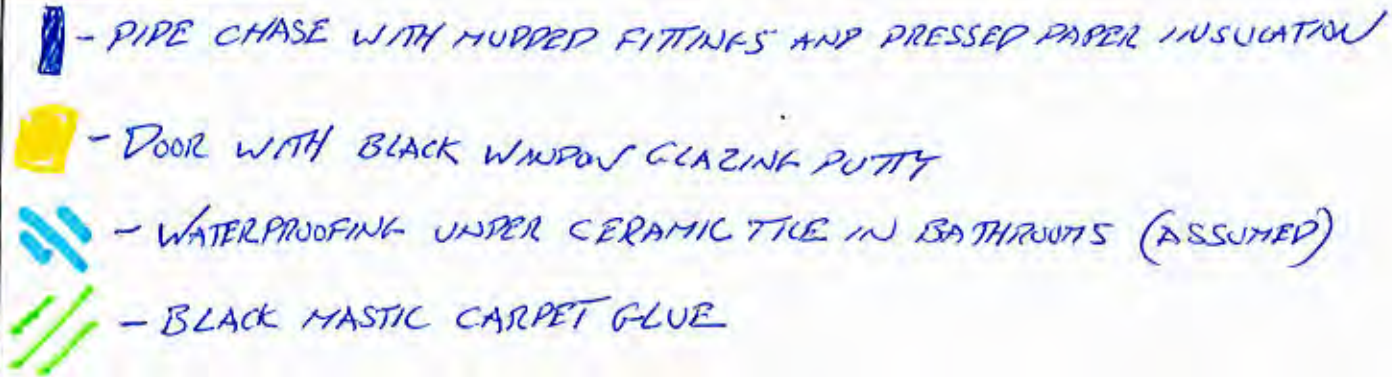 - PIPE CHASE WITH MUDDED FITTINGS AND PRESSED PAPER INSULATION
- DOOR WITH BLACK WINDOW GLAZING PUTTY
- WATERPROOFING UNDER CERAMIC TILE IN BATHROOMS (ASSUMED)
- BLACK MASTIC CARPET GLUE